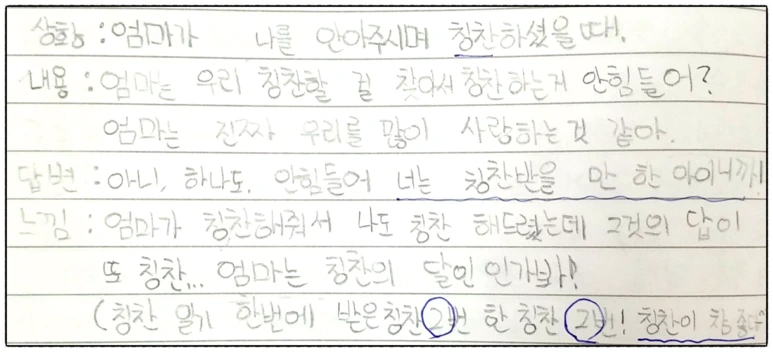 상황 : 엄마가 나를 안아주시며 칭찬하셨을 때.
내용 : 엄마는 우리 칭찬할 걸 찾아서 칭찬하는게 안힘들어?
엄마는 진짜 우리를 많이 사랑하는것 같아.
답변 : 아니, 하나도. 안힘들어 너는 칭찬받을 만 한 아이니까!
느낌 : 엄마가 칭찬해줘서 나도 칭찬 해드렸는데 그것의 답이
또 칭찬... 엄마는 칭찬의 달인 인가봐!
(칭찬 일기 한번에 받은칭찬 2번 한 칭찬 2번! 칭찬이 참 좋다